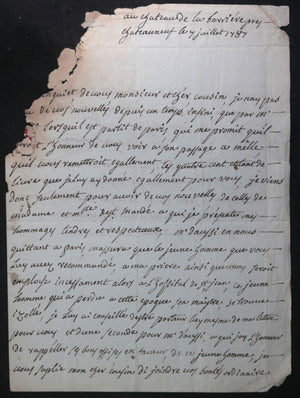 au chateau de la barriere pres
chateauneuf le 7 juillet 1787
inquiet de vous monsieur et cher cousin je n'ay pas
de vos nouvelles depuis un temps infini que par mr
lorsquil est partit de paris, qui me promit quil
l'honneur de vous voir a son passage a
quil vous remettroit egallement les quatre cent
Livre que je luy ay donné egallement pour vous, je viens
donc seulement pour avoir de vos nouvelles de celles de
madame et a qui je presente mes
hommages tendres et respectueux, mr daussi en nous
quittant a paris massura que le jeune homme que vous
luy avez recommandé, a ma priere ainsi que moy seroit
employé incessament alors a lhopital de st jean, ce jeune
homme qui a perdu a cette epoque son maitre se trouve
izollé, je luy ai conseillé destre porteur luy mesme de ma lettre
pour vous et d'une seconde pour mr daussi, a qui j'ay l'honneur
de rappeller, ses bons offices en faveur de ce jeune homme, je
vous suplie mon cher cousin di joindre vos bontés ordinaire